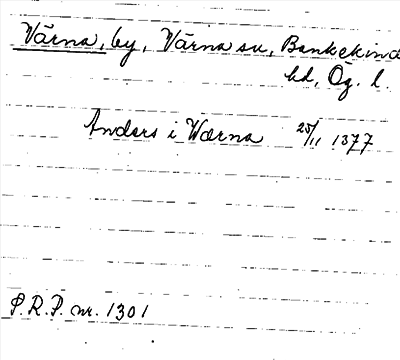 Värna, by, Värna sn, Bankekind
hd, Ög. l.
Anders i Wærna 25/11 1377
S.R.P. nr. 1301